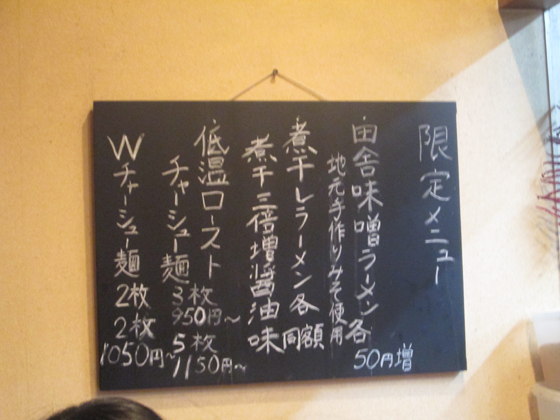 限定メニュー
田舎味噌ラーメン各
50円増
地元手作りみそ使用
煮干しラーメン各同額
煮干三倍増醤油味
低温ロースト
チャーシュー麺
3枚
950円~
5枚
1150円~
Wチャーシュー麺
2枚
2枚
1050円~